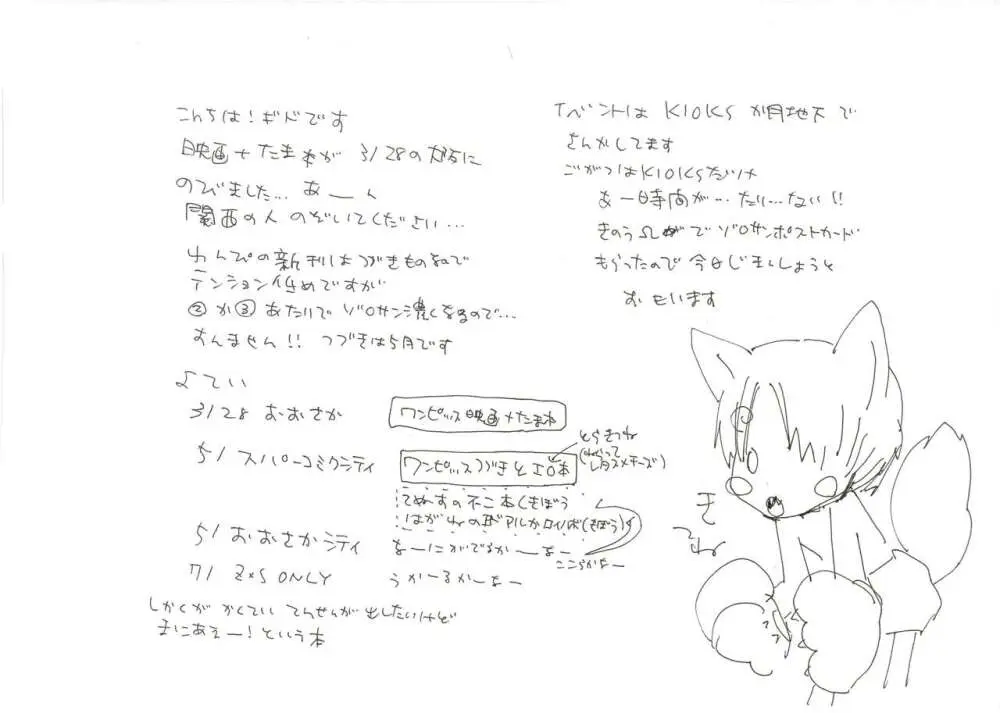 こんちは！ギドです
映画+たま本が 3/28の大阪に
のびました… あーん
関西の人 のぞいてください…
わんぴの新刊はつづきものなので
テンション低めですが
②か③あたりで ゾロサン濃くなるので…
すんません!! つづきは5月です
よてい
3/28 おおさか ワンピッス映画+たま本
とらきつね
5/1 スパーコミクシティ ワンピッスつづきと
(レタスメチーズ)
てぬすの不二本(きぼう)
はがねの アルかロイ本(きぼう)
5/1 おおさかシティ なーにがでるかーなー
ここらかなー
7/1 Z×S ONLY うかーるかーなー
しかくが かくてい てんせんが 出したいけど
まにあえー！という本
イベントは KIOKS が月地下で
さんかしてます
ごがつは KIOKSだけ
あー時間が…たり…ない!!
きのう で ゾロサンポストカード
もらったので 今日じまんしようと
おもいます
きつね